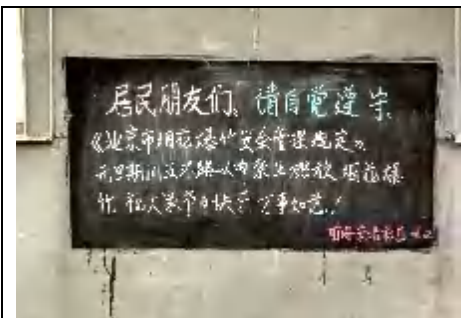 居民朋友们，请自觉遵守
《北京市烟花爆竹安全管理规定》
元旦期间五环路以内禁止燃放烟花爆
竹，祝大家节日快乐万事如意！